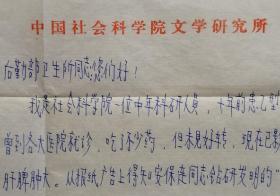 中国社会科学院文学研究所
后勤部卫生所同志:您们好!
我是社会科学院一位中年科研人员,十年前患乙型
曾到各大医院就诊,吃了不少药,但未见好转,现在已影
肝脾肿大。从报纸广告上得知安保健同志钻石开发明的